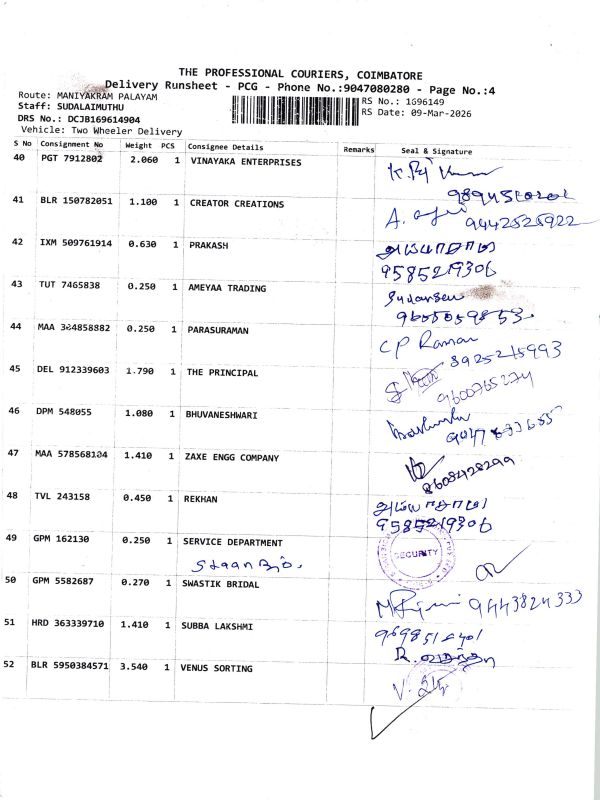 THE PROFESSIONAL COURIERS, COIMBATORE
Delivery Runsheet - PCG - Phone No.:9047080280 - Page No.:4
Route: MANIYAKRAM PALAYAM
Staff: SUDALAIMUTHU
DRS No.: DCJB169614904
Vehicle: Two Wheeler Delivery
RS No.: 1696149
RS Date: 09-Mar-2026
S No Consignment No Weight PCS Consignee Details Remarks Seal & Signature
40 PGT 7912802 2.060 1 VINAYAKA ENTERPRISES
41 BLR 150782051 1.100 1 CREATOR CREATIONS A. 9442525922
42 IXM 509761914 0.630 1 PRAKASH
9585219306
43 TUT 7465838 0.250 1 AMEYAA TRADING
44 MAA 384858882 0.250 1 PARASURAMAN CP Raman
8925215993
45 DEL 912339603 1.790 1 THE PRINCIPAL
9600765274
46 DPM 548055 1.080 1 BHUVANESHWARI
47 MAA 578568104 1.410 1 ZAXE ENGG COMPANY
8608428299
48 TVL 243158 0.450 1 REKHAN
9585219306
49 GPM 162130 0.250 1 SERVICE DEPARTMENT SECURITY
50 GPM 5582687 0.270 1 SWASTIK BRIDAL
9443824333
51 HRD 363339710 1.410 1 SUBBA LAKSHMI
52 BLR 5950384571 3.540 1 VENUS SORTING